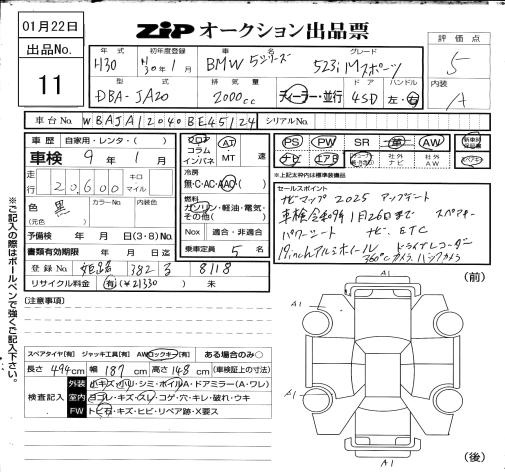 01月22日
ZIP オークション出品票
出品No.
11
年式 初年度登録 車名 グレード
H30 H30年1月 BMW 5シリーズ 523i Mスポーツ
評価点
5
型式 排気量 ドア ハンドル
DBA-JA20 2000cc ディーラー・並行 4SD 左・右
内装
A
車台No. WBAJA12040BE45124 シリアルNo.
車歴 自家用・レンタ・( )
車検 9年1月
走行 20600 キロ マイル
色 黒 カラーNo. 内装色
(元色)
予備検 年 月 日(3・8)No.
書類有効期限 年 月 日迄
登録No. 姫路 382 る 8118
リサイクル料金 有(¥21330) 未
フロア コラム インパネ AT MT 速
冷房
無・C・AC・AAC
燃料
ガソリン・軽油・電気・その他( )
Nox 適合・非適合
乗車定員 5名
PS PW SR 革 AW
ナビ エアB 社外ナビ 社外AW
※上記太枠内は標準装備品
セールスポイント
ナビマップ 2025 アップデート
車検令和9年1月26日まで スペアキー
パワーシート ナビ、ETC
19inchアルミホイール ドライブレコーダー
360°カメラ、バックカメラ
※ご記入の際はボールペンで強くご記入下さい。
[注意事項]
(前)
A1
A1
A1
A1
(後)
スペアタイヤ[有] ジャッキ工具[有] AWロックキー[有] ある場合のみ○
長さ 494cm 幅 187cm 高さ 148cm (車検証上の寸法)
検査記入
外装 小キズ・小凹・シミ・ホイルA・ドアミラー(A・ワレ)
室内 ヨゴレ・キズ・スレ・コゲ・穴・キレ・破れ・ウキ
FW トビ石・キズ・ヒビ・リペア跡・X要ス